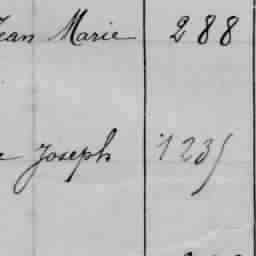 Jean Marie 288
Joseph 1235